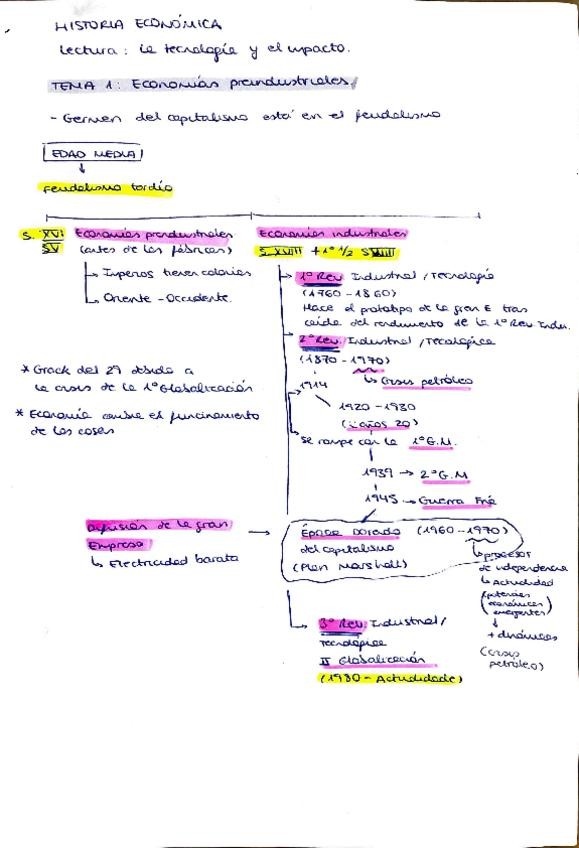 HISTORIA ECONÓMICA
Lectura: la tecnología y el impacto.
TEMA 1: Economías preindustriales
- Germen del capitalismo está en el feudalismo
EDAD MEDIA
↓
Feudalismo tardío
S. XVI Economías preindustriales
SV (antes de las fábricas)
Imperos tienen colonias
Oriente - Occidente.
* Crack del 29 debido a
la crisis de la 1º Globalización
* Economía cambie el funcinamiento
de las cosas
Economías industriales
S. XVIII + 1º 1/2 SXVIII
1º Rev. Industrial / Tecnología
(1760-1860)
Nace el prototipo de la gran E tras
caída del rendimiento de la 1º Rev Indu.
2º Rev. Industrial / Tecnológica
(1870-1970)
↳ Crisis petróleo
1914
1920-1930
(años 20)
se rompe con la 1º G.M.
1939 → 2º G.M
1945 → Guerra Fría
Difusión de la gran →
Empresa
↳ Electricidad barata
Época dorada (1960-1970)
del capitalismo
(Plan Marshall)
↳ procesos
de independencia
↳ Actualidad
(potencias
económicas
emergentes)
↓
+ dinámicas
(crisis
petróleo)
3º Rev. Industrial /
Tecnológica
II Globalización
(1980 - Actualidade)